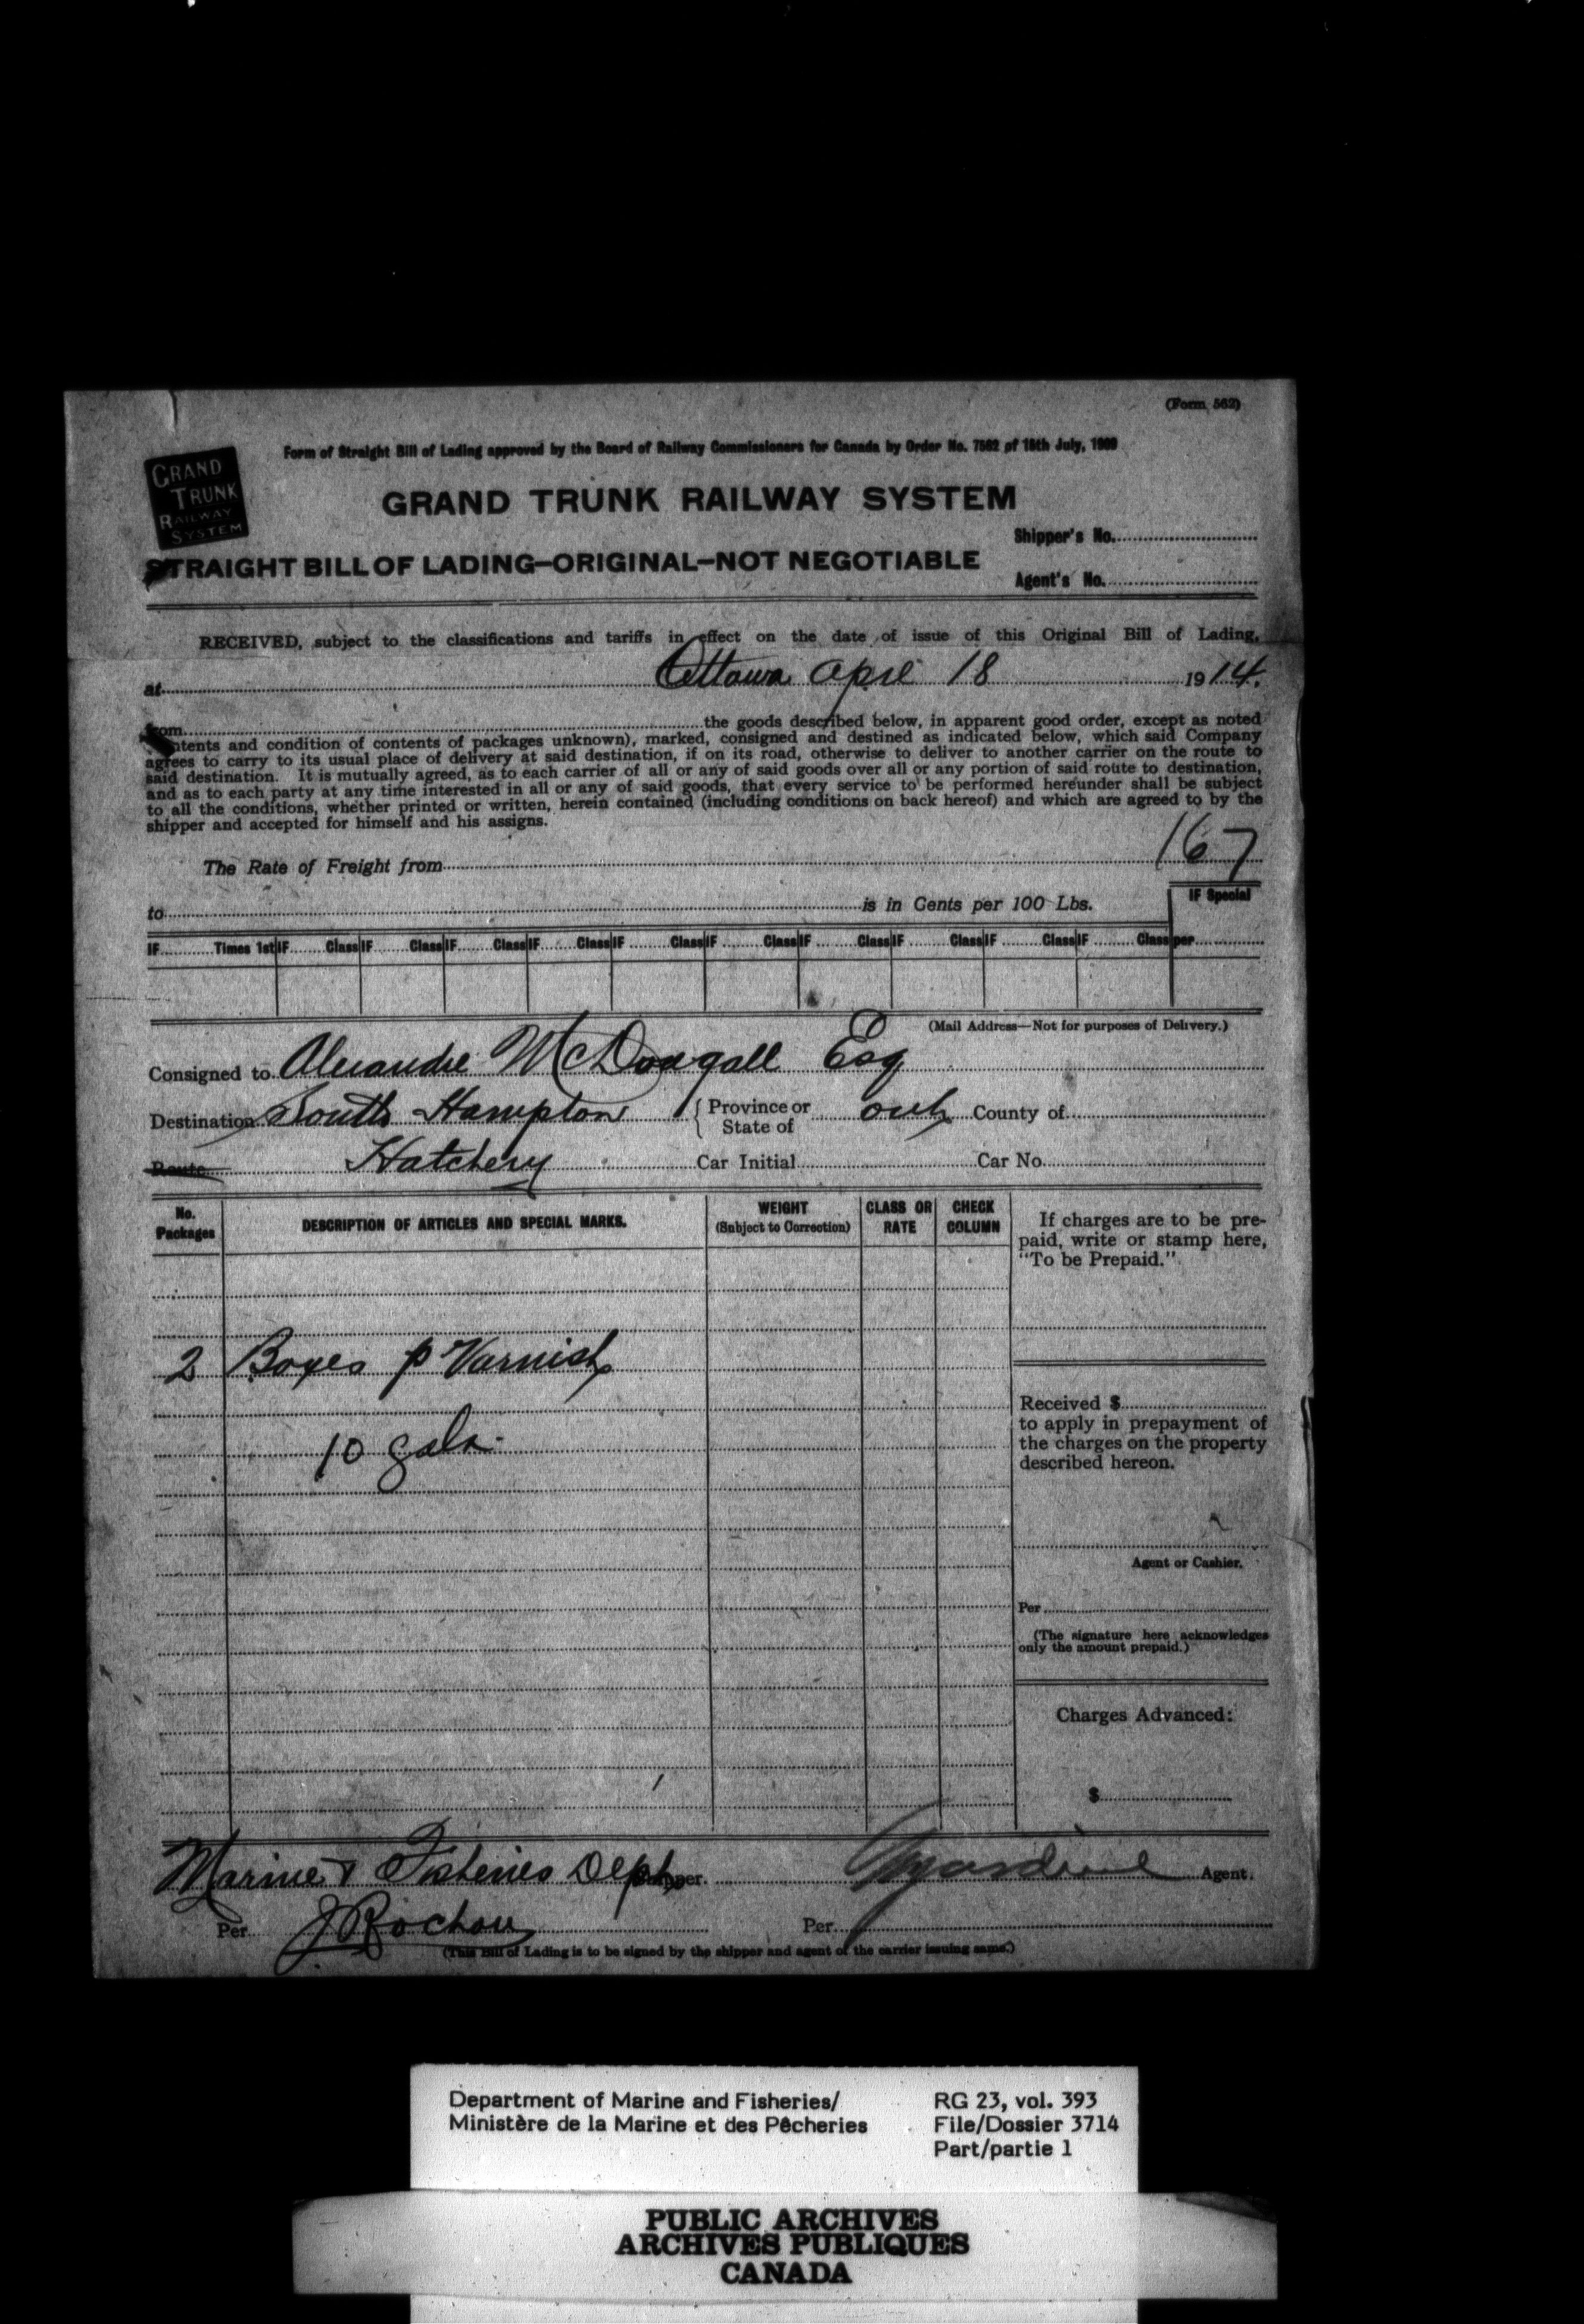 (Form 562)
Form of Straight Bill of Lading approved by the Board of Railway Commissioners for Canada by Order No. 7562 of 15th July, 1909
GRAND
TRUNK
RAILWAY
SYSTEM
GRAND TRUNK RAILWAY SYSTEM
Shipper's No.
STRAIGHT BILL OF LADING—ORIGINAL—NOT NEGOTIABLE
Agent's No.
RECEIVED, subject to the classifications and tariffs in effect on the date of issue of this Original Bill of Lading,
at Ottawa April 18 1914.
from the goods described below, in apparent good order, except as noted
contents and condition of contents of packages unknown), marked, consigned and destined as indicated below, which said Company
agrees to carry to its usual place of delivery at said destination, if on its road, otherwise to deliver to another carrier on the route to
said destination. It is mutually agreed, as to each carrier of all or any of said goods over all or any portion of said route to destination,
and as to each party at any time interested in all or any of said goods, that every service to be performed hereunder shall be subject
to all the conditions, whether printed or written, herein contained (including conditions on back hereof) and which are agreed to by the
shipper and accepted for himself and his assigns.
167
The Rate of Freight from
to is in Cents per 100 Lbs.
IF Special
IF Times 1st IF Class IF Class IF Class IF Class IF Class IF Class IF Class IF Class IF Class IF Class per
(Mail Address—Not for purposes of Delivery.)
Consigned to Alexandre McDougall Esq
Destination South Hampton Province or State of Ont County of
Route Hatchery Car Initial Car No.
No. Packages
DESCRIPTION OF ARTICLES AND SPECIAL MARKS.
WEIGHT (Subject to Correction)
CLASS OR RATE
CHECK COLUMN
If charges are to be pre-
paid, write or stamp here,
"To be Prepaid."
2 Boxes p Varnish
10 gals.
Received $
to apply in prepayment of
the charges on the property
described hereon.
Agent or Cashier.
Per
(The signature here acknowledges
only the amount prepaid.)
Charges Advanced:
$
Marine & Fisheries Dept Shipper. Agent.
Per J Rochon Per
(This Bill of Lading is to be signed by the shipper and agent of the carrier issuing same.)
Department of Marine and Fisheries/
Ministère de la Marine et des Pêcheries
RG 23, vol. 393
File/Dossier 3714
Part/partie 1
PUBLIC ARCHIVES
ARCHIVES PUBLIQUES
CANADA